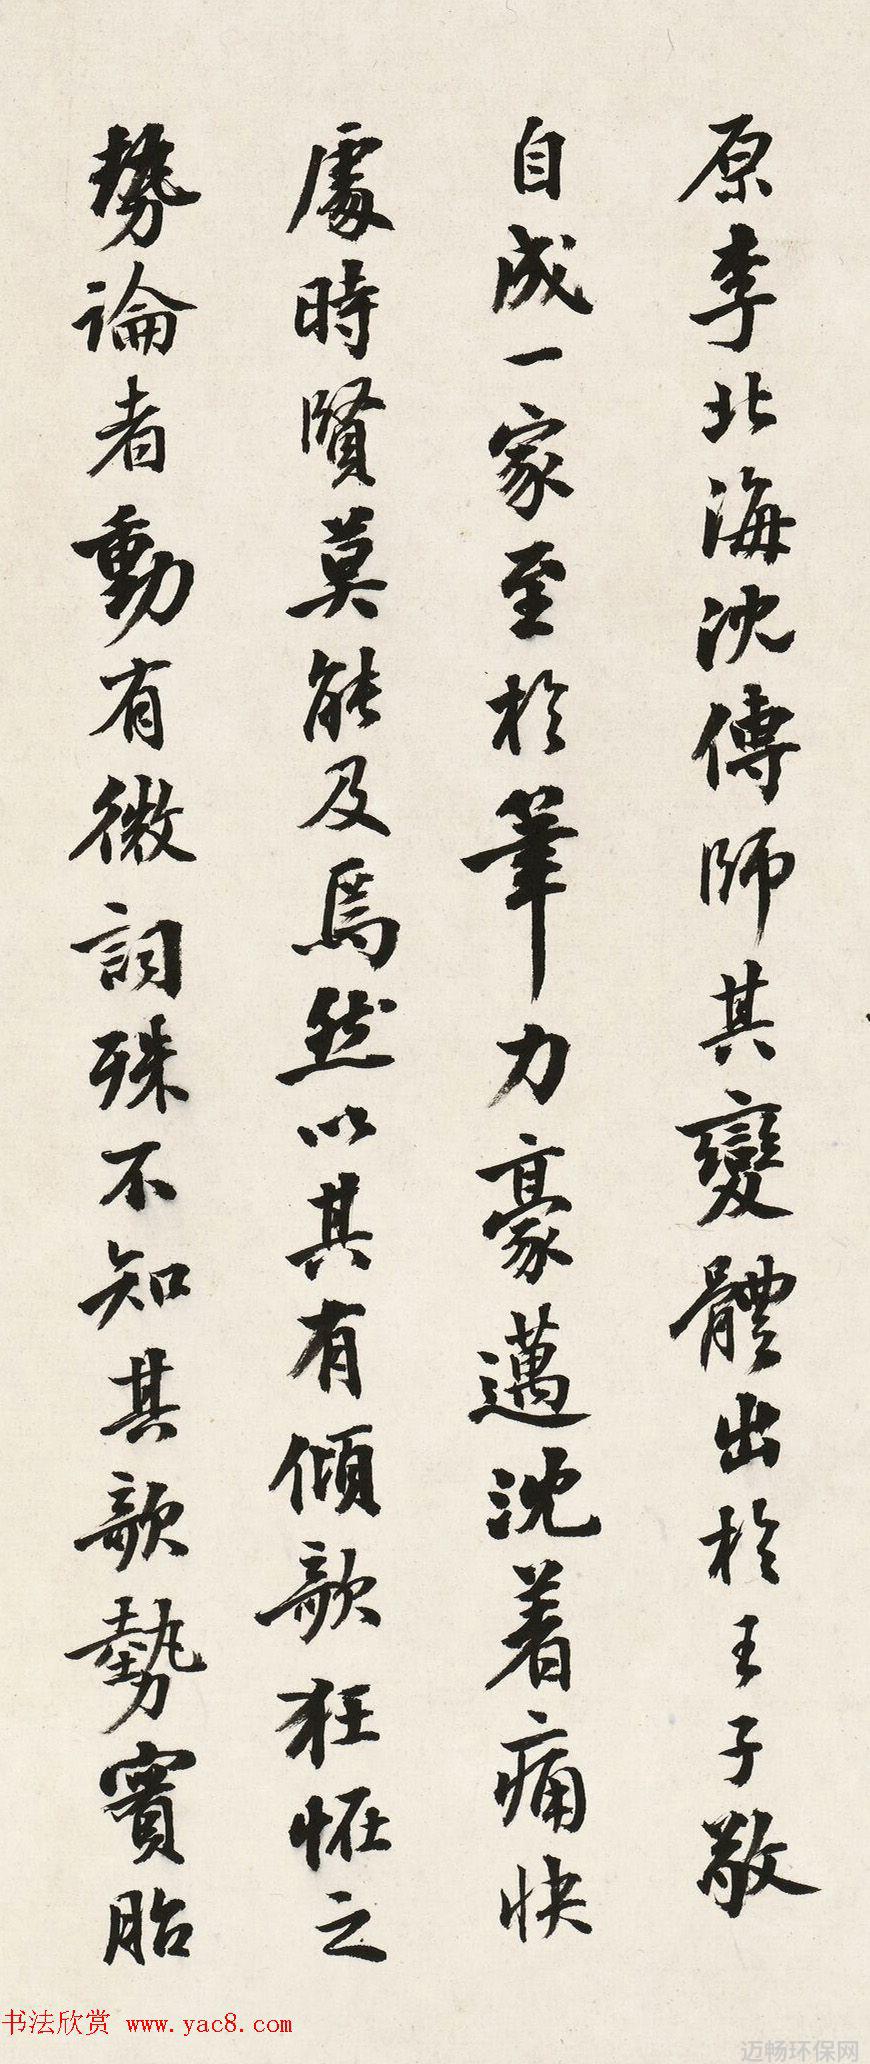 原李北海沈傳師其變體出於王子敬
自成一家至於筆力豪邁沈着痛快
處時賢莫能及焉然以其有傾欹狂怪之
勢論者動有微詞殊不知其欹勢實胎
书法欣赏 www.yac8.com
迈畅环保网